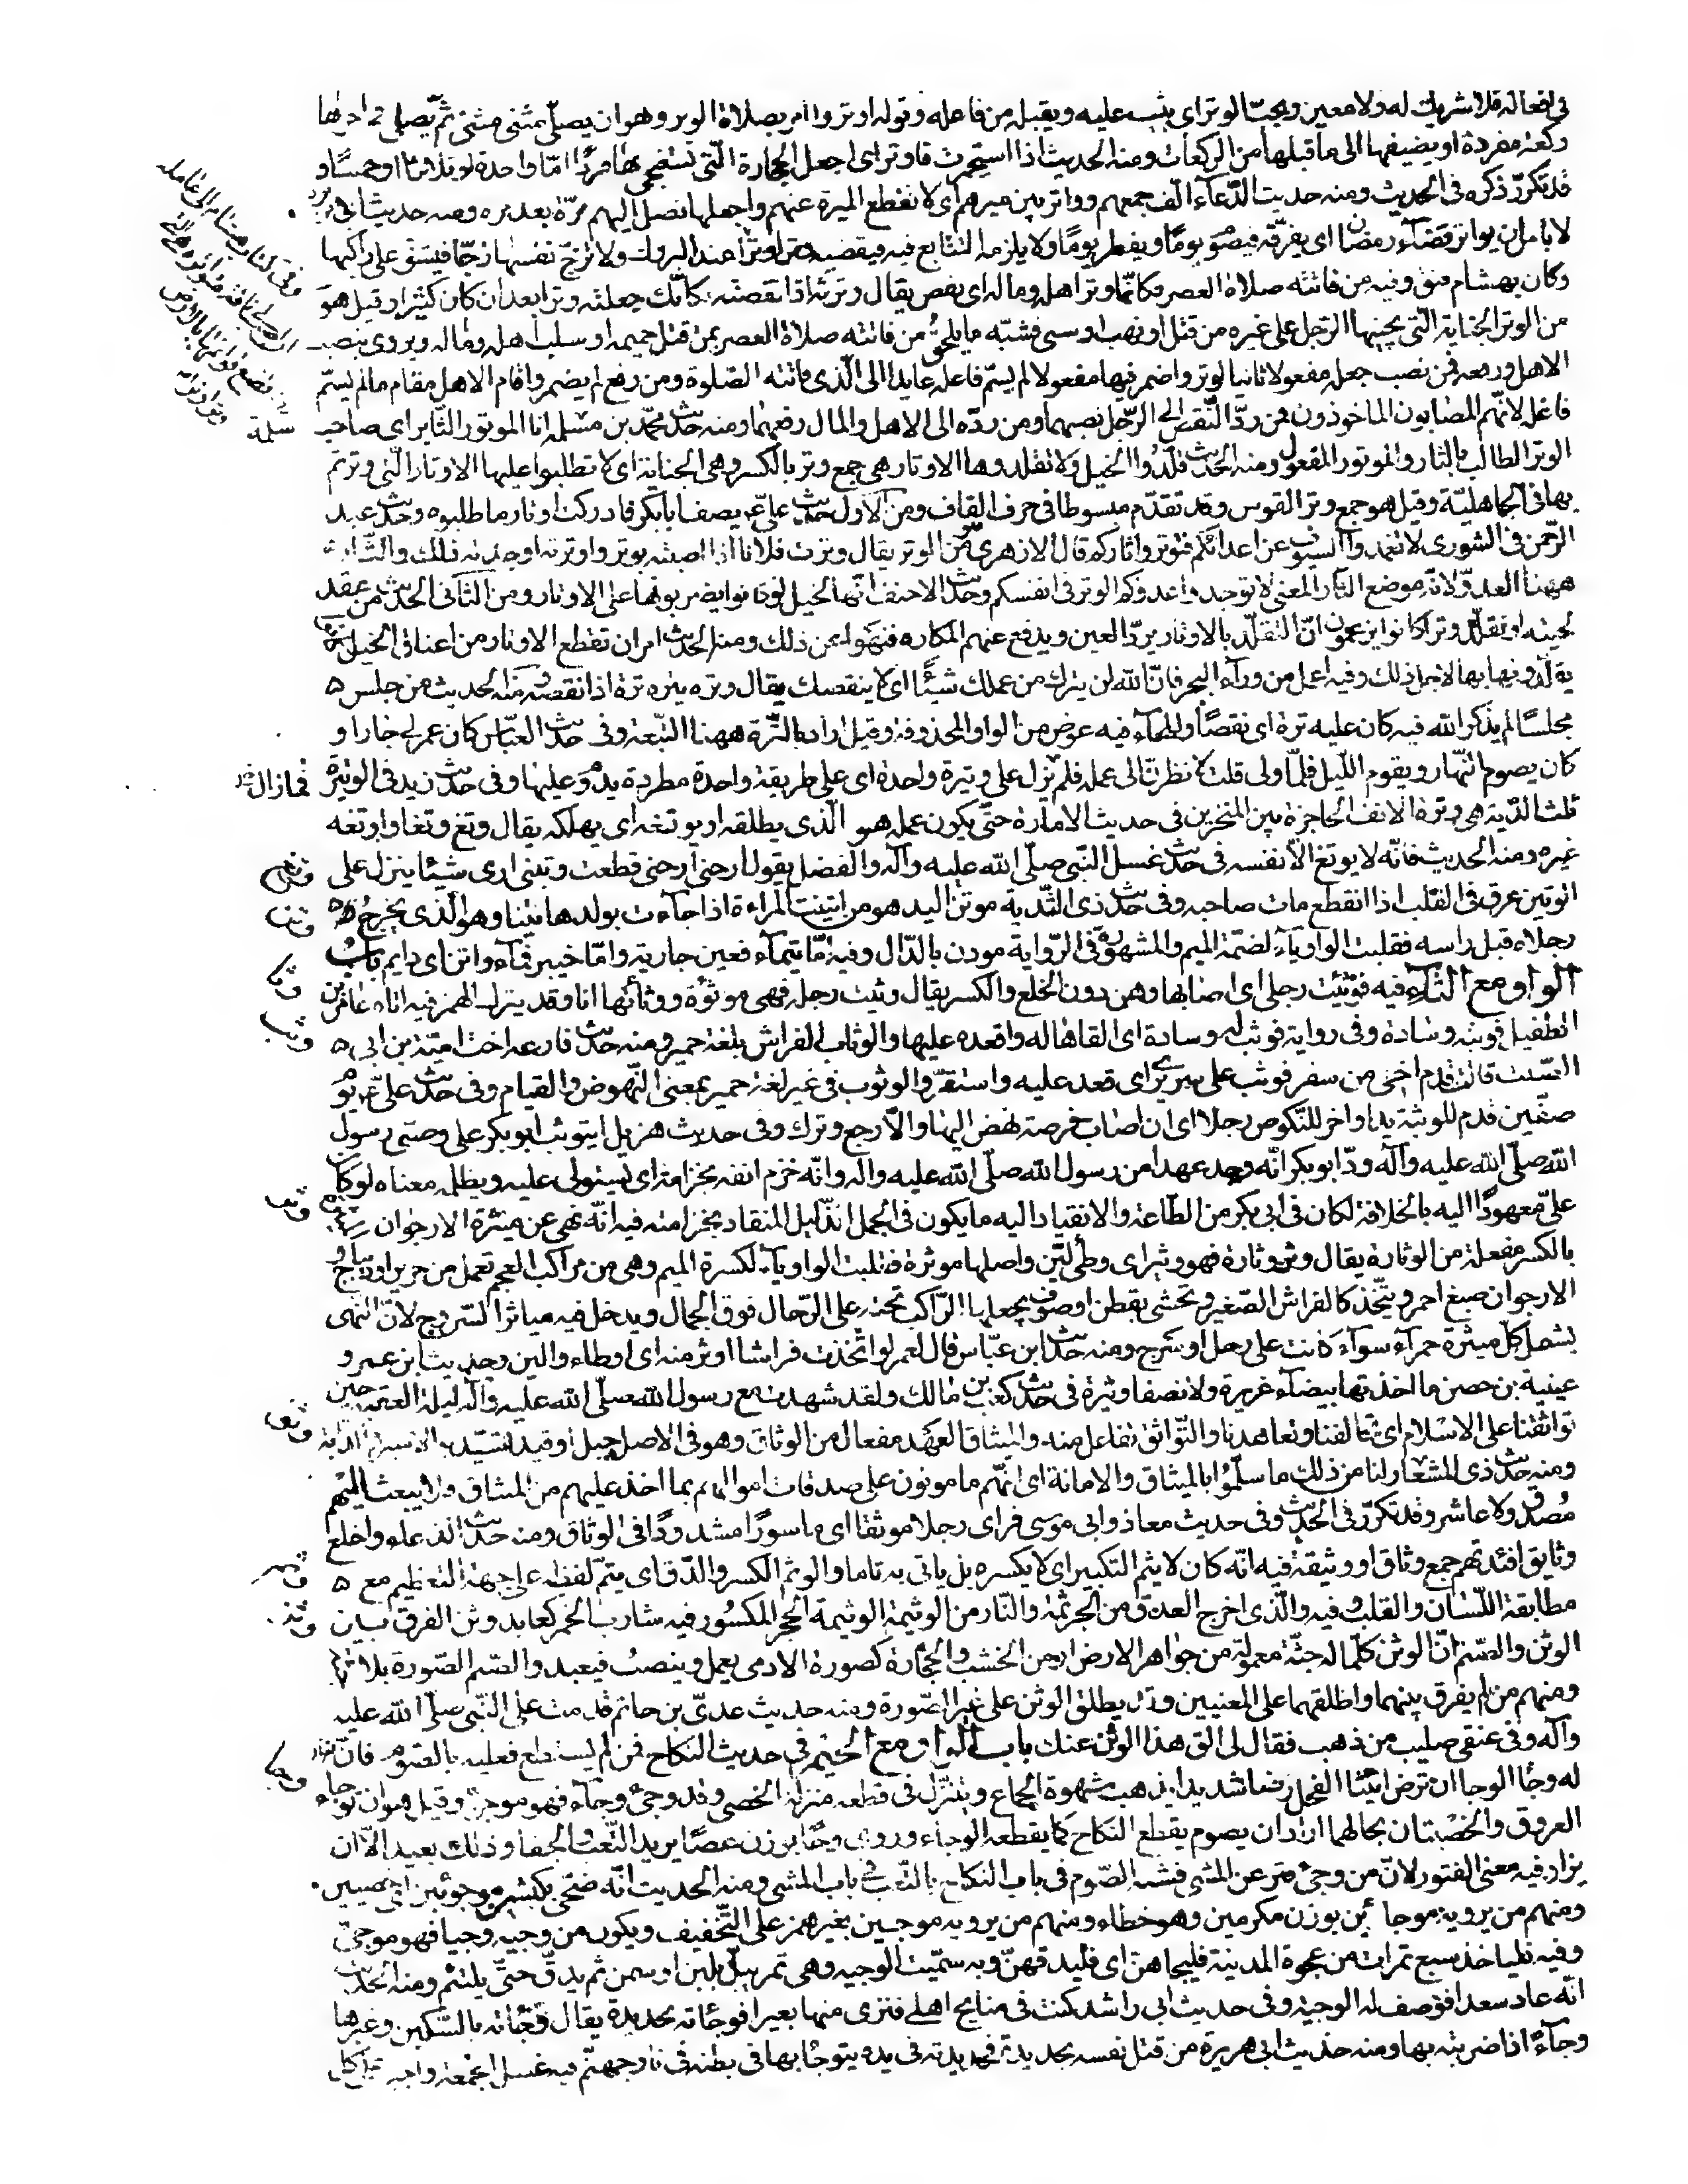 في افعاله فلا شريك له ولا معين ويحبّ الوتر اى يثيب عليه ويقبله من فاعله وقوله اوتروا امر بصلاة الوتر وهو ان يصلّى مثنى مثنى ثمّ يصلى في اخرها
ركعة مفردة او يضيفها الى ما قبلها من الركعات ومنه الحديث اذا استجمرت فاوتر اى اجعل الحجارة الّتى تستنجى بها فردًا امّا واحدة او ثلاثا او خمسًا و
قد تكرّر ذكره فى الحديث ومنه حديث الدّعاء الّف جمعهم وواتر بين ميرهم اى لا تقطع الميرة عنهم واجعلها تصل اليهم مرّة بعد مره ومنه حديث ابى
لا باس ان يواتر قضاء رمضان اى يفرّقه فيصوم يومًا ويفطر يومًا ولا يلزمه التتابع فيه فيقضيه وترا وترا عند البروك ولا تزجّ نفسها زجّا فيشق على راكبها
وكان بهشام فتق وفيه من فاتته صلاة العصر فكانّما وتر اهله وماله اى نقص يقال وترته اذا نقصته فكانّك جعلته وترا بعد ان كان كثيرا وقيل هو
من الوتر الجناية الّتى يجنيها الرّجل على غيره من قتل او نهب او سبى فشبّه ما يلحق من فاتته صلاة العصر بمن قتل حميمه او سلب اهله وماله ويروى بنصب
الاهل ورفعه فمن نصب جعله مفعولا ثانيا لوتر واضمر فيها مفعولا لم يسمّ فاعله عايدا الى الّذى فاتته الصّلوة ومن رفع لم يضمر واقام الاهل مقام مالم يسمّ
فاعله لانّهم المصابون الماخوذون فمن ردّ النّقص الى الرّجل نصبهما ومن ردّه الى الاهل والمال رفعهما ومنه حديث محمّد بن مسلمه انا الموتور الثّاير اى صاحب
الوتر الطالب بالثار والموتور المفعول ومنه الحديث قلّدوا الخيل ولا تقلدوها الاوتار هى جمع وتر بالكسر وهى الجناية اى لا تطلبوا عليها الاوتار الّتى وترتم
بها فى الجاهليّة وقيل هو جمع وتر القوس وقد تقدّم مبسوطا فى حرف القاف ومن الاوّل حديث علىّ يصف ابا بكر فادركت اوتار ما طلبوه وحديث عبد
الرّحمن فى الشورى لا تغمدوا السيوف عن اعدائكم فتوتروا ثاركم قال الازهرى من الوتر يقال وترت فلانا اذا اصبته بوتر واوترته اوجدته ذلك والثّار
ههنا العدوّ لانّه موضع الثار المعنى لا توجدوا عدوكم الوتر فى انفسكم وحديث الاحنف انّها الخيل لو كانوا يضربونها على الاوتار ومن الثّانى الحديث من عقد
لحيته او تقلّد وترا كانوا يزعمون انّ التقلّد بالاوتار يردّ العين ويدفع عنهم المكاره فنهوا عن ذلك ومنه الحديث امر ان تقطع الاوتار من اعناق الخيل
يقلّدونها بها لاجل ذلك وفيه اعمل من ورآء البحر فانّ الله لن يترك من عملك شيئًا اى لا ينقصك يقال وتره يتره ترة اذا نقصه ومنه الحديث من جلس
مجلسًا لم يذكر الله فيه كان عليه ترة اى نقصًا والهاء فيه عوض من الواو المحذوفة وقيل اراد بالتّرة ههنا التّبعة وفى حديث العبّاس كان عمر لى جارا و
كان يصوم النّهار ويقوم اللّيل فلمّا ولى قلت لانظرنّ الى عمله فلم يزل على وتيرة واحدة اى على طريقة واحدة مطردة يدوم عليها وفى حديث زيد فى الوتيرة
ثلث الدّية هى وترة الانف الحاجزة بين المنخرين فى حديث الامارة حتّى يكون عمله هو الّذى يطلقه او يوتغه اى يهلكه يقال وتغ وتغا واوتغه
غيره ومنه الحديث فانّه لا يوتغ الّا نفسه فى حديث غسل النّبى صلّى الله عليه وآله والفضل يقول ارحنى ارحنى قطعت وتينى ارى شيئا ينزل على
الوتين عرق فى القلب اذا انقطع مات صاحبه وفى حديث ذى الثّدية موتن اليد هو من ايتنت المراءة اذا جآءت بولدها يتنا وهو الّذى يخرج
رجلاه قبل راسه فقلبت الواو ياء لضمّة الميم والمشهور فى الرّواية مودن بالدّال وفيه امّا تيماء فعين جارية وامّا خيبر فمآء واتن اى دايم باب
الواو مع الثآء فيه فوثئت رجلى اى اصابها وهن دون الخلع والكسر يقال وثئت رجله فهى موثؤة ووثأتها انا وقد يترك الهمز فيه اتاه عامر بن
الطفيل فوثبه وسادة وفى رواية فوثب له وسادة اى القاها له واقعده عليها والوثاب الفراش بلغة حمير ومنه حديث فارعه اخت اميّة بن ابى
الصّلت قالت قدم اخى من سفر فوثب على سريرى اى قعد عليه واستقرّ والوثوب فى غير لغة حمير بمعنى النّهوض والقيام وفى حديث علىّ يوم
صفّين قدم للوثبة يدا واخر للنّكوص رجلا اى ان اصاب فرصة نهض اليها والّا رجع وترك وفى حديث هزيل ايتوثب ابو بكر على وصىّ رسول
الله صلّى الله عليه وآله ودّ ابو بكر انّه وجد عهدا من رسول الله صلّى الله عليه واله وانّه خزم انفه بخزامة اى يستولى عليه ويظلمه معناه لو كان
علىّ معهودًا اليه بالخلافة لكان فى ابى بكر من الطّاعة والانقياد اليه ما يكون فى الجمل الذّليل المنقاد بخزامته فيه انّه نهى عن ميثرة الارجوان
بالكسر مفعلة من الوثارة يقال وثر وثارة فهو وثير اى وطئ ليّن واصلها موثرة فقلبت الواو ياء لكسرة الميم وهى من مراكب العجم تعمل من حرير او ديباج
الارجوان صبغ احمر ويتّخذ كالفراش الصّغير وتحشى بقطن او صوف يجعلها الرّاكب تحته على الرّحال فوق الجمال ويدخل فيه مياثر السّروج لانّ النّهى
يشمل كلّ ميثرة حمرآء سوآء كانت على رحل او سرج ومنه حديث ابن عبّاس قال لعمر لو اتّخذت فراشا اوثر منه اى اوطاء والين وحديث ابن عمر و
عيينة بن حصن ما اخذتها بيضآء غريرة ولا نصفا وثيرة فى حديث كعب بن مالك ولقد شهدت مع رسول الله صلّى الله عليه وآله ليلة العقبة حين
تواثقنا على الاسلام اى تحالفنا وتعاهدنا والتّواثق تفاعل منه والميثاق العهد مفعال من الوثاق وهو فى الاصل حبل او قيد يشدّ به الاسير والدّابة
ومنه حديث ذى المشعار لنا من ذلك ما سلّموا بالميثاق والامانة اى انّهم مامونون على صدقات اموالهم بما اخذ عليهم من الميثاق فلا يبعث اليهم
مصدّق ولا عاشر وقد تكرّر فى الحديث وفى حديث معاذ وابى موسى فراى رجلا موثقا اى ماسورًا مشدودًا فى الوثاق ومنه حديث الدعاء واخلع
وثايق افئدتهم جمع وثاق او وثيقة فيه انّه كان لا يثم التكبير اى لا يكسره بل ياتى به تاما والوثم الكسر والدّق اى يتمّ لفظه على جهة التعظيم مع
مطابقة اللّسان والقلب وفيه والّذى اخرج العذق من الجريمة والنّار من الوثيمة الوثيمة الحجر المكسور فيه شارب الخمر كعابد وثن الفرق بين
الوثن والصّنم انّ الوثن كلّما له جثّة معمولة من جواهر الارض او من الخشب والحجارة كصورة الادمى يعمل وينصب فيعبد والصّنم الصّورة بلا جثة
ومنهم من لم يفرق بينهما واطلقهما على المعنيين وقد يطلق الوثن على غير الصّورة ومنه حديث عدىّ بن حاتم قدمت على النّبى صلّى الله عليه
وآله وفى عنقى صليب من ذهب فقال لى الق هذا الوثن عنك باب الواو مع الجيم فى حديث النكاح فمن لم يستطع فعليه بالصّوم فانّه
له وجاء الوجا ان ترض انثيا الفحل رضا شديدا يذهب شهوة الجماع ويتنزّل فى قطعه منزلة الخصى وقد وجئ وجآء فهو موجوء وقيل هو ان توجاء
العروق والخصيتان بحالهما اراد ان يصوم يقطع النكاح كما يقطعه الوجاء وروى وجًا بوزن عصًا يريد التّعب والحفا وذلك بعيد الّا ان
يراد فيه معنى الفتور لانّ من وجئ فتر عن المشى فشبّه الصّوم فى باب النكاح بالتّعب فى باب المشى ومنه الحديث انّه ضحّى بكبشين موجوئين اى خصيين
ومنهم من يرويه موجائين بوزن مكرمين وهو خطاء ومنهم من يرويه موجيين بغير همز على التّخفيف ويكون من وجيته وجيا فهو موجى
وفيه فلياخذ سبع تمرات من عجوة المدينة فليجاهن اى فليدقهنّ وبه سمّيت الوجيه وهى تمر يبلّ بلبن او سمن ثم يدقّ حتّى يلتئم ومنه الحديث
انّه عاد سعدا فوصف له الوجيئة وفى حديث ابى راشد كنت فى منايح اهلى فنزى منها بعير فوجاته بحديدة يقال وجاته بالسّكين وغيرها
وجآءً اذا ضربته بها ومنه حديث ابى هريرة من قتل نفسه بحديدة فحديدته فى يده يتوجّا بها فى بطنه فى نار جهنّم فيه غسل الجمعة واجب على كل
وتغ
وتن
وثا
وثب
وثر
وثق
وثم
وثن
وجا